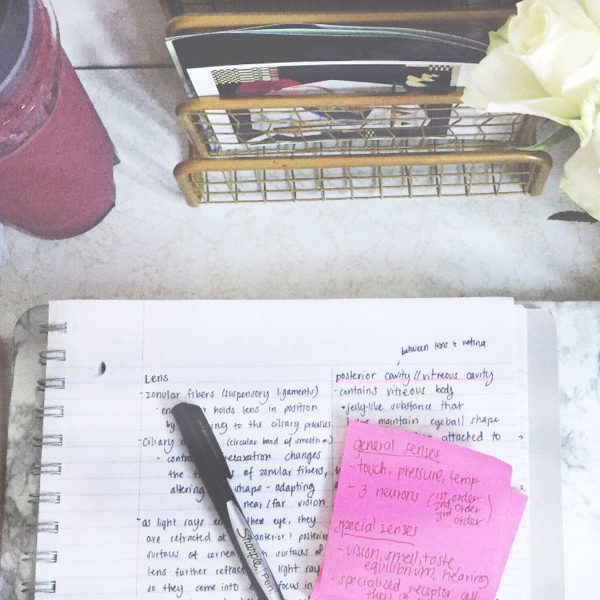 between lens & retina
Lens
zonular fibers (suspensory ligaments)
holds lens in position
by to the ciliary
ciliary (circular band of smooth
- relaxation changes
the of zonular fibers,
altering shape - adapting
near/far vision
- as light rays eye, they
are refracted posterior
surface of surfaces of
lens further light rays
so they come into focus
posterior cavity//vitreous cavity
- contains vitreous body
• jelly-like substance that
maintain eyeball shape
attached to
general senses
- touch, pressure, temp
- 3 neurons (1st order
2nd order
3rd order)
special senses
- vision, smell, taste,
equilibrium, hearing
- specialized receptor cell
Sharpie Pen